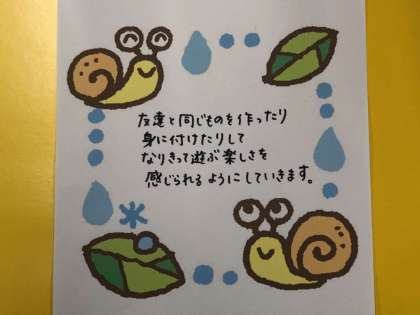 友達と同じものを作ったり
身に付けたりして
なりきって遊ぶ楽しさを
感じられるようにしていきます。